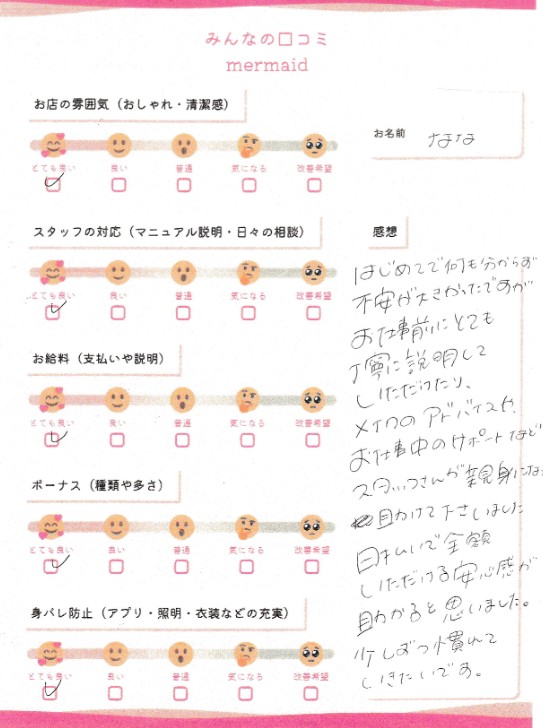 みんなの口コミ
mermaid
お店の雰囲気（おしゃれ・清潔感）
とても良い 良い 普通 気になる 改善希望
スタッフの対応（マニュアル説明・日々の相談）
とても良い 良い 普通 気になる 改善希望
お給料（支払いや説明）
とても良い 良い 普通 気になる 改善希望
ボーナス（種類や多さ）
とても良い 良い 普通 気になる 改善希望
身バレ防止（アプリ・照明・衣装などの充実）
とても良い 良い 普通 気になる 改善希望
お名前 なな
感想
はじめてで何も分からず
不安が大きかったですが
お仕事前にとても
丁寧に説明して
いただけたり、
メイクのアドバイスや、
お仕事中のサポートなど
スタッフさんが親身になっ
助けて下さいました
日払いで全額
いただける安心感が
助かると思いました。
少しずつ慣れて
いきたいです。